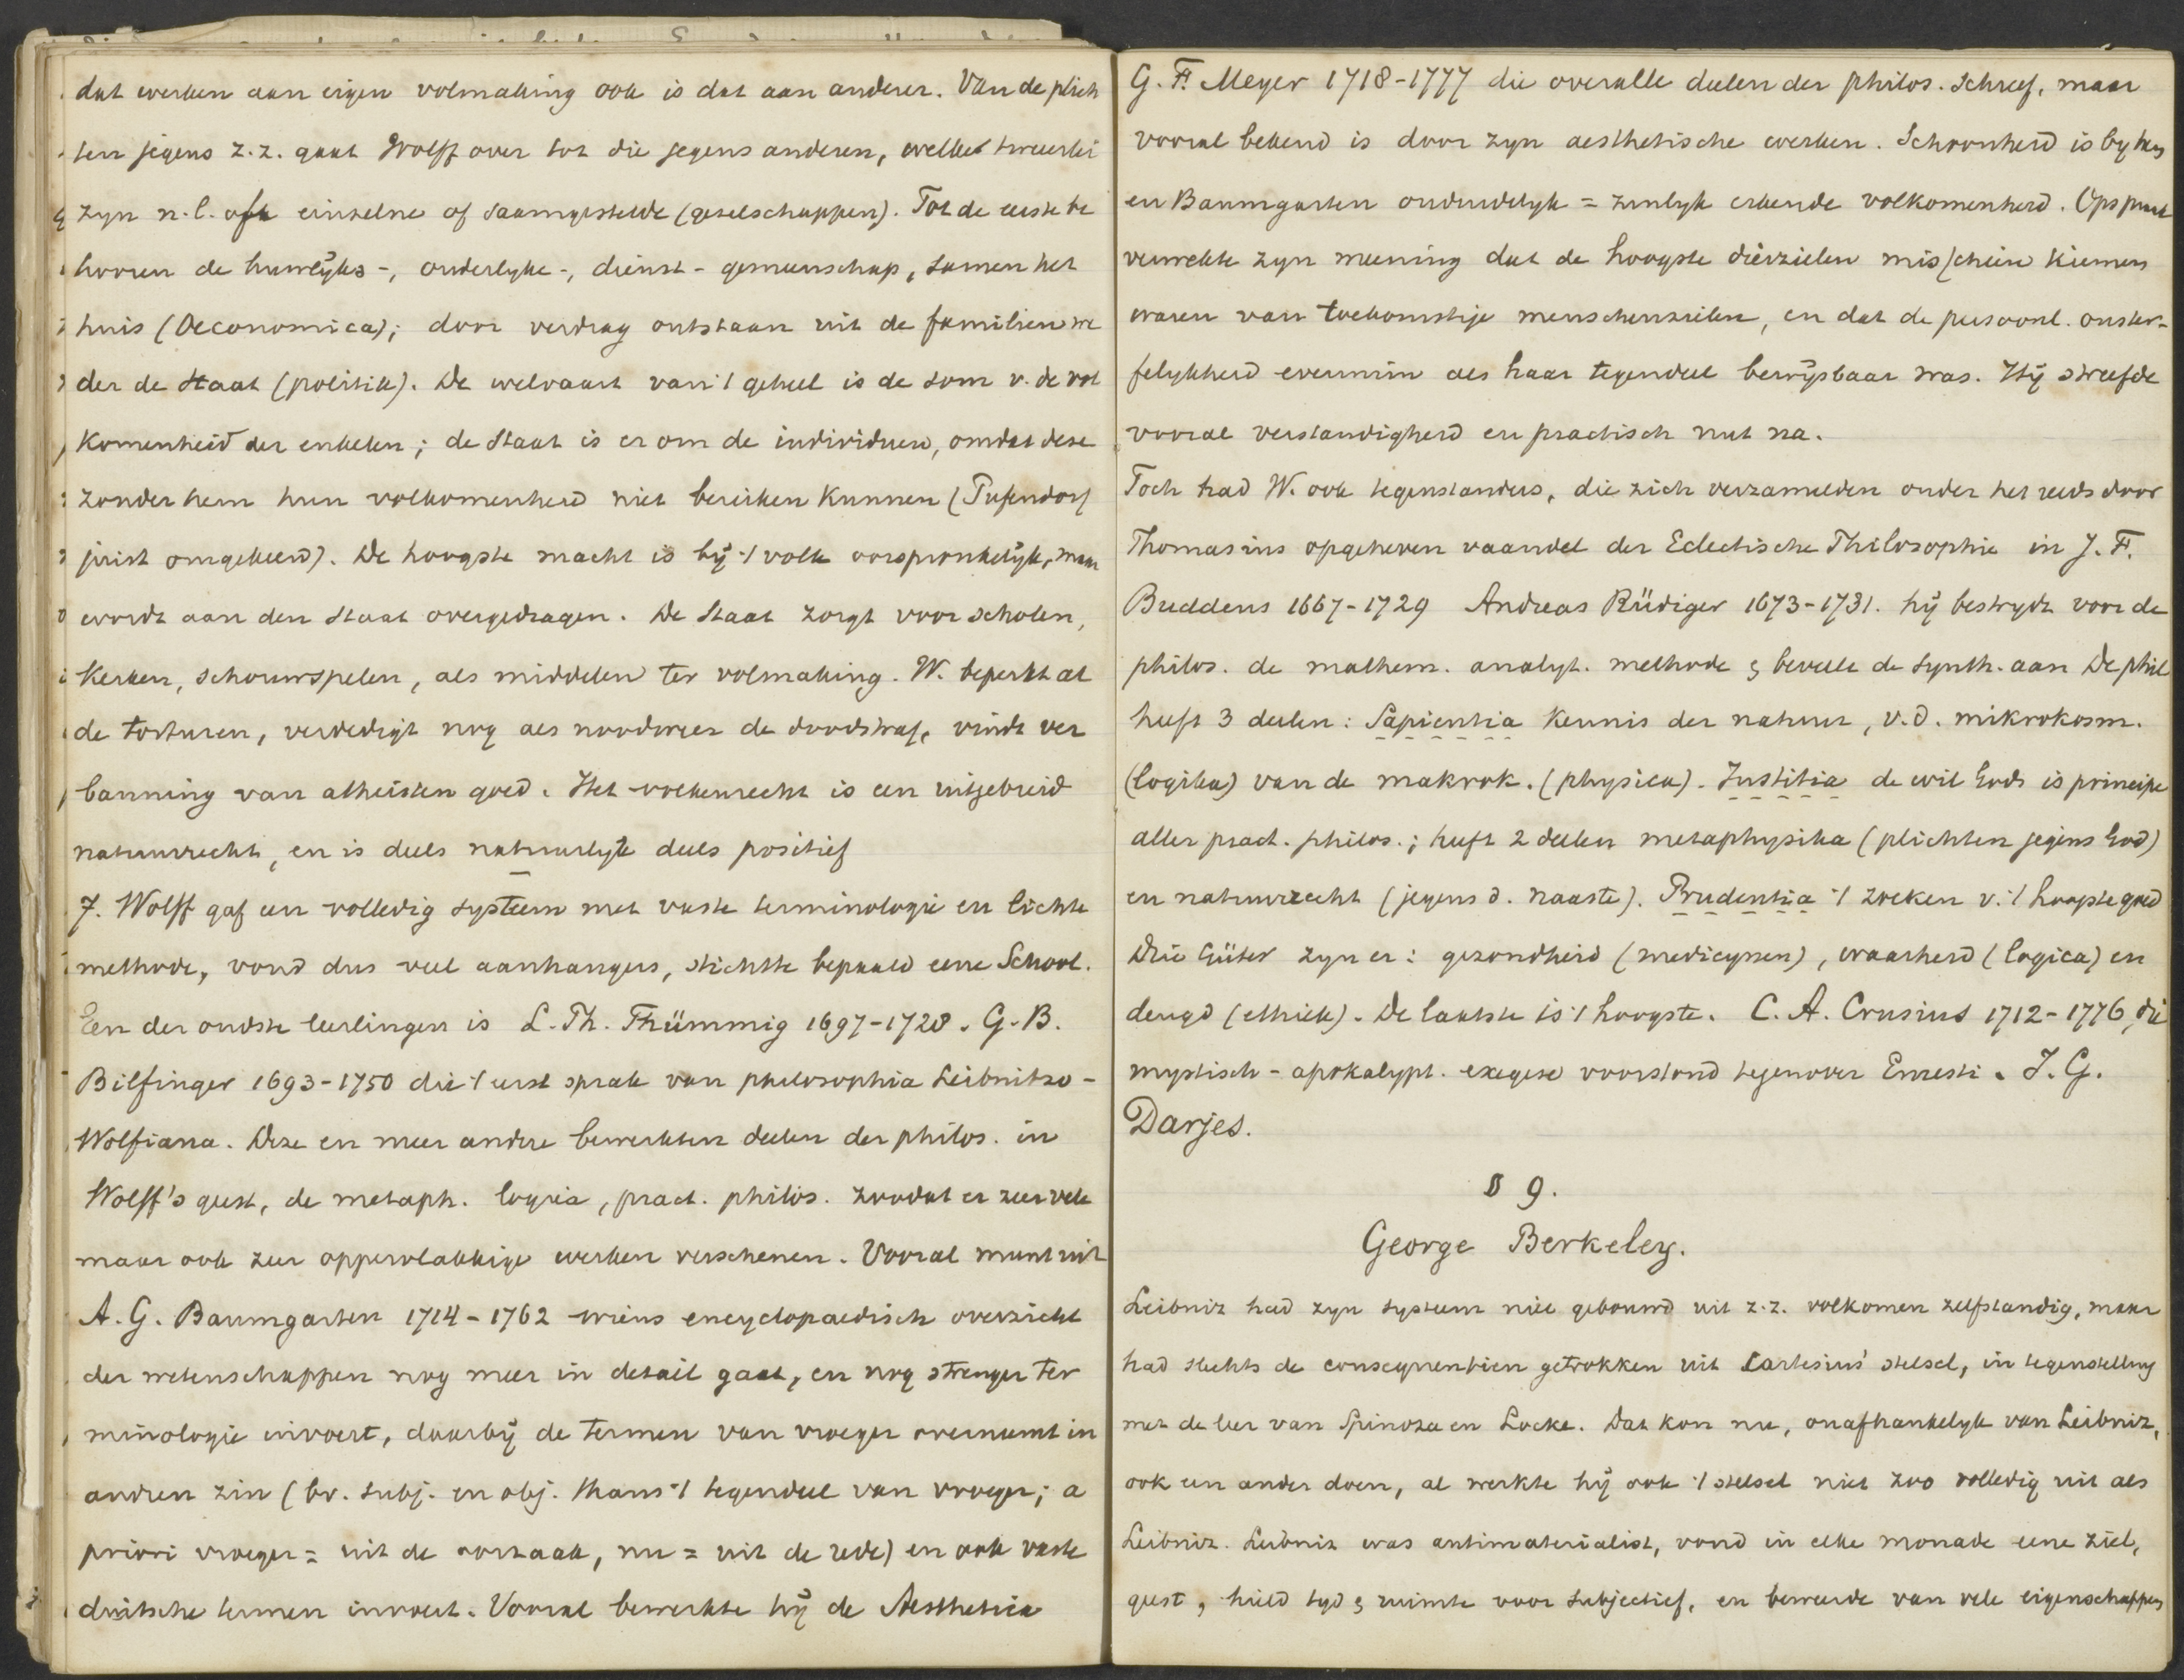 dat werken aan eigen volmaking ook is dat aan anderer. Van de plich
ten jegens z.z. gaat Wolff over tot die jegens anderen, welke tweeërlei
zyn n.l. ofte einzelne of saamgestelde (geselschappen). Tot de eerste be
hooren de huwelÿks-, ouderlyke-, dienst-gemeenschap, samen het
huis (Oeconomica); door verdrag ontstaan uit de familien we
der de Staat (politik). De welvaart van 't geheel is de som v. de vol
komenheid der enkelen; de Staat is er om de individuen, omdat deze
zonder hem hun volkomenheid niet bereiken kunnen (Pufendorf
juist omgekeerd). De hoogste macht is bÿ 't volk oorspronkelÿk, maar
wordt aan den Staat overgedragen. De Staat zorgt voor scholen,
Kerken, schouwspelen, als middelen ter volmaking. W. beperkt al
de torturen, verdedigt nog als noodweer de doodstraf, vindt ver
banning van atheisten goed. Het volkenrecht is een uitgebreid
natuurrecht, en is deels natuurlyk deels positief
7. Wolff gaf een volledig systeem met vaste terminologie en lichte
methode, vond dus veel aanhangers, stichtte bepaald eene School.
Een der oudste leerlingen is L. Th. Thümmig 1697-1728. G. B.
Bilfinger 1693-1750 die 't eerst sprak van philosophia Leibnitzo-
Wolfiana. Deze en meer andere bewerkten deelen der philos. in
Wolff's geest, de metaph. logica, pract. philos. zoodat er zeer vele
maar ook zeer oppervlakkige werken verschenen. Vooral munt uit
A. G. Baumgarten 1714-1762 wiens encyclopaedisch overzicht
der wetenschappen nog meer in detail gaat, en nog strenger ter
minologie invoert, daarbÿ de termen van vroeger overneemt in
andren zin (bv. subj. en obj. thans 't tegendeel van vroeger; a
priori vroeger = uit de oorzaak, nu = uit de rede) en ook vaste
duitsche termen invoert. Vooral bewerkte hÿ de Aesthetica
G. F. Meyer 1718-1777 die over alle deelen der philos. schreef, maar
vooral bekend is door zyn aesthetische werken. Schoonheid is by hem
en Baumgarten onduidelyk = zinlyk erkende volkomenheid. Opspraak
verwekte zyn meening dat de hoogste dierzielen misschien kiemen
waren van toekomstige menschenzielen, en dat de persoonl. onster-
felykheid evenmin als haar tegendeel bewÿsbaar was. Hÿ streefde
vooral verstandigheid en practisch nut na.
Toch had W. ook tegenstanders, die zich verzamelden onder het reeds door
Thomasius opgeheven vaandel der Eclectische Philosophie in J. F.
Buddeus 1667-1729 Andreas Rüdiger 1673-1731. hÿ bestrydt voor de
philos. de mathem. analyt. methode & beveelt de synth. aan De phil
heeft 3 deelen: Sapientia Kennis der natuur, v.d. mikrokosm.
(logika) van de makrok. (physica). Justitia de wil Gods is principe
aller pract. philos.; heeft 2 deelen metaphysika (plichten jegens God)
en natuurrecht (jegens d. naaste). Prudentia 't zoeken v. 't hoogste goed
Drie Güter zyn er: gezondheid (medicynen), waarheid (logica) en
deugd (ethiek). De laatste is 't hoogste. C. A. Crusius 1712-1776, die
mystisch-apokalypt. exegese voorstond tegenover Ernesti. J. G.
Darjes.
§ 9.
George Berkeley.
Leibniz had zyn systeem niet gebouwd uit z.z. volkomen zelfstandig, maar
had slechts de consequentien getrokken uit Cartesius' stelsel, in tegenstelling
met de leer van Spinoza en Locke. Dat kon nu, onafhankelyk van Leibniz,
ook een ander doen, al werkte hÿ ook 't stelsel niet zoo volledig uit als
Leibniz. Leibniz was antimaterialist, vond in elke monade eene ziel,
geest, hield tyd & ruimte voor subjectief, en beweerde van vele eigenschappen